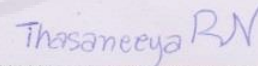 Thasaneeya RN